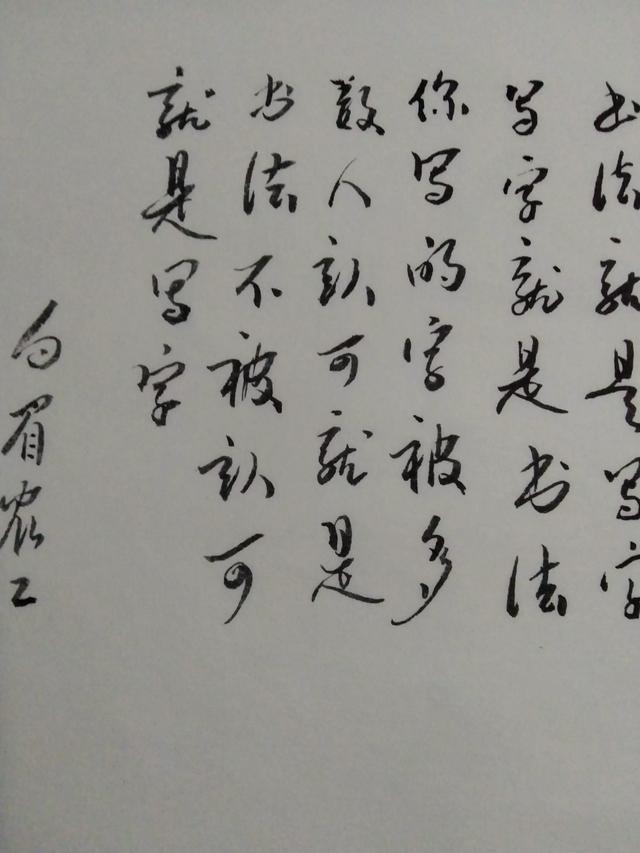 书法就是写字
写字就是书法
你写的字被多
数人认可就是
书法不被认可
就是写字
白眉农工